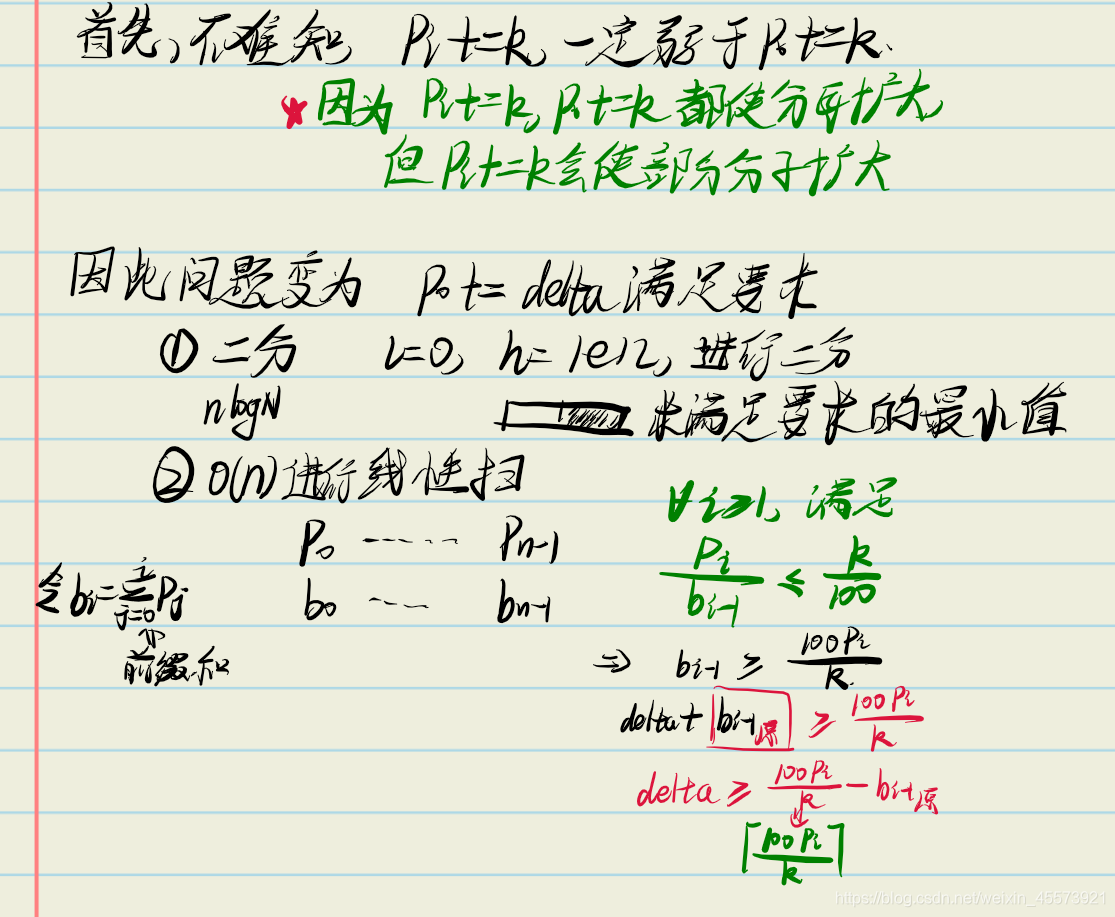 首先,不难知 Pi+=k,一定弱于P0+=k.
*因为 Pi+=k,P0+=k 都使分母扩大,
但Pi+=k会使部分分子扩大
因此问题变为 P0+=delta满足要求
①二分 l=0, h=1e12,进行二分
nlogN 求满足要求的最小值
②O(n)进行线性扫
∀i≥1,满足
P0 ----- Pn-1
Pi/bi-1 ≤ k/100
令bi=∑j=0^i Pj b0 ---- bn-1
前缀和
⇒ bi-1 ≥ 100Pi/k
delta+bi-1原 ≥ 100Pi/k
delta ≥ 100Pi/k - bi-1原
⌈100Pi/k⌉
https://blog.csdn.net/weixin_45573921